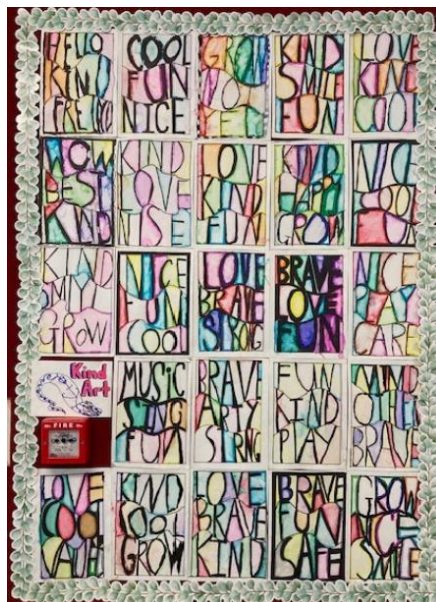 HELLO
KIND
COOL
FUN
NICE
GROW
KIND
SMILE
FUN
LOVE
KIND
COOL
WOW
BEST
KIND
KIND
LOVE
LOVE
KIND
FUN
KIND
GROW
NICE
KIND
SMILE
GROW
NICE
FUN
COOL
LOVE
BRAVE
STRONG
BRAVE
LOVE
FUN
NICE
PLAY
CARE
Kind
Art
FIRE
MUSIC
SING
FUN
BRAVE
FUN
KIND
PLAY
BRAVE
LOVE
COOL
KIND
COOL
GROW
LOVE
BRAVE
KIND
BRAVE
FUN
GROW
NICE
SMILE